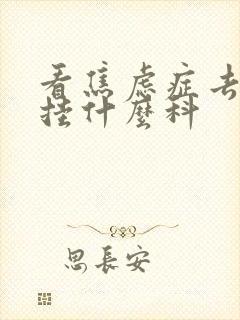 看焦虑症去
挂什麼科
思長安